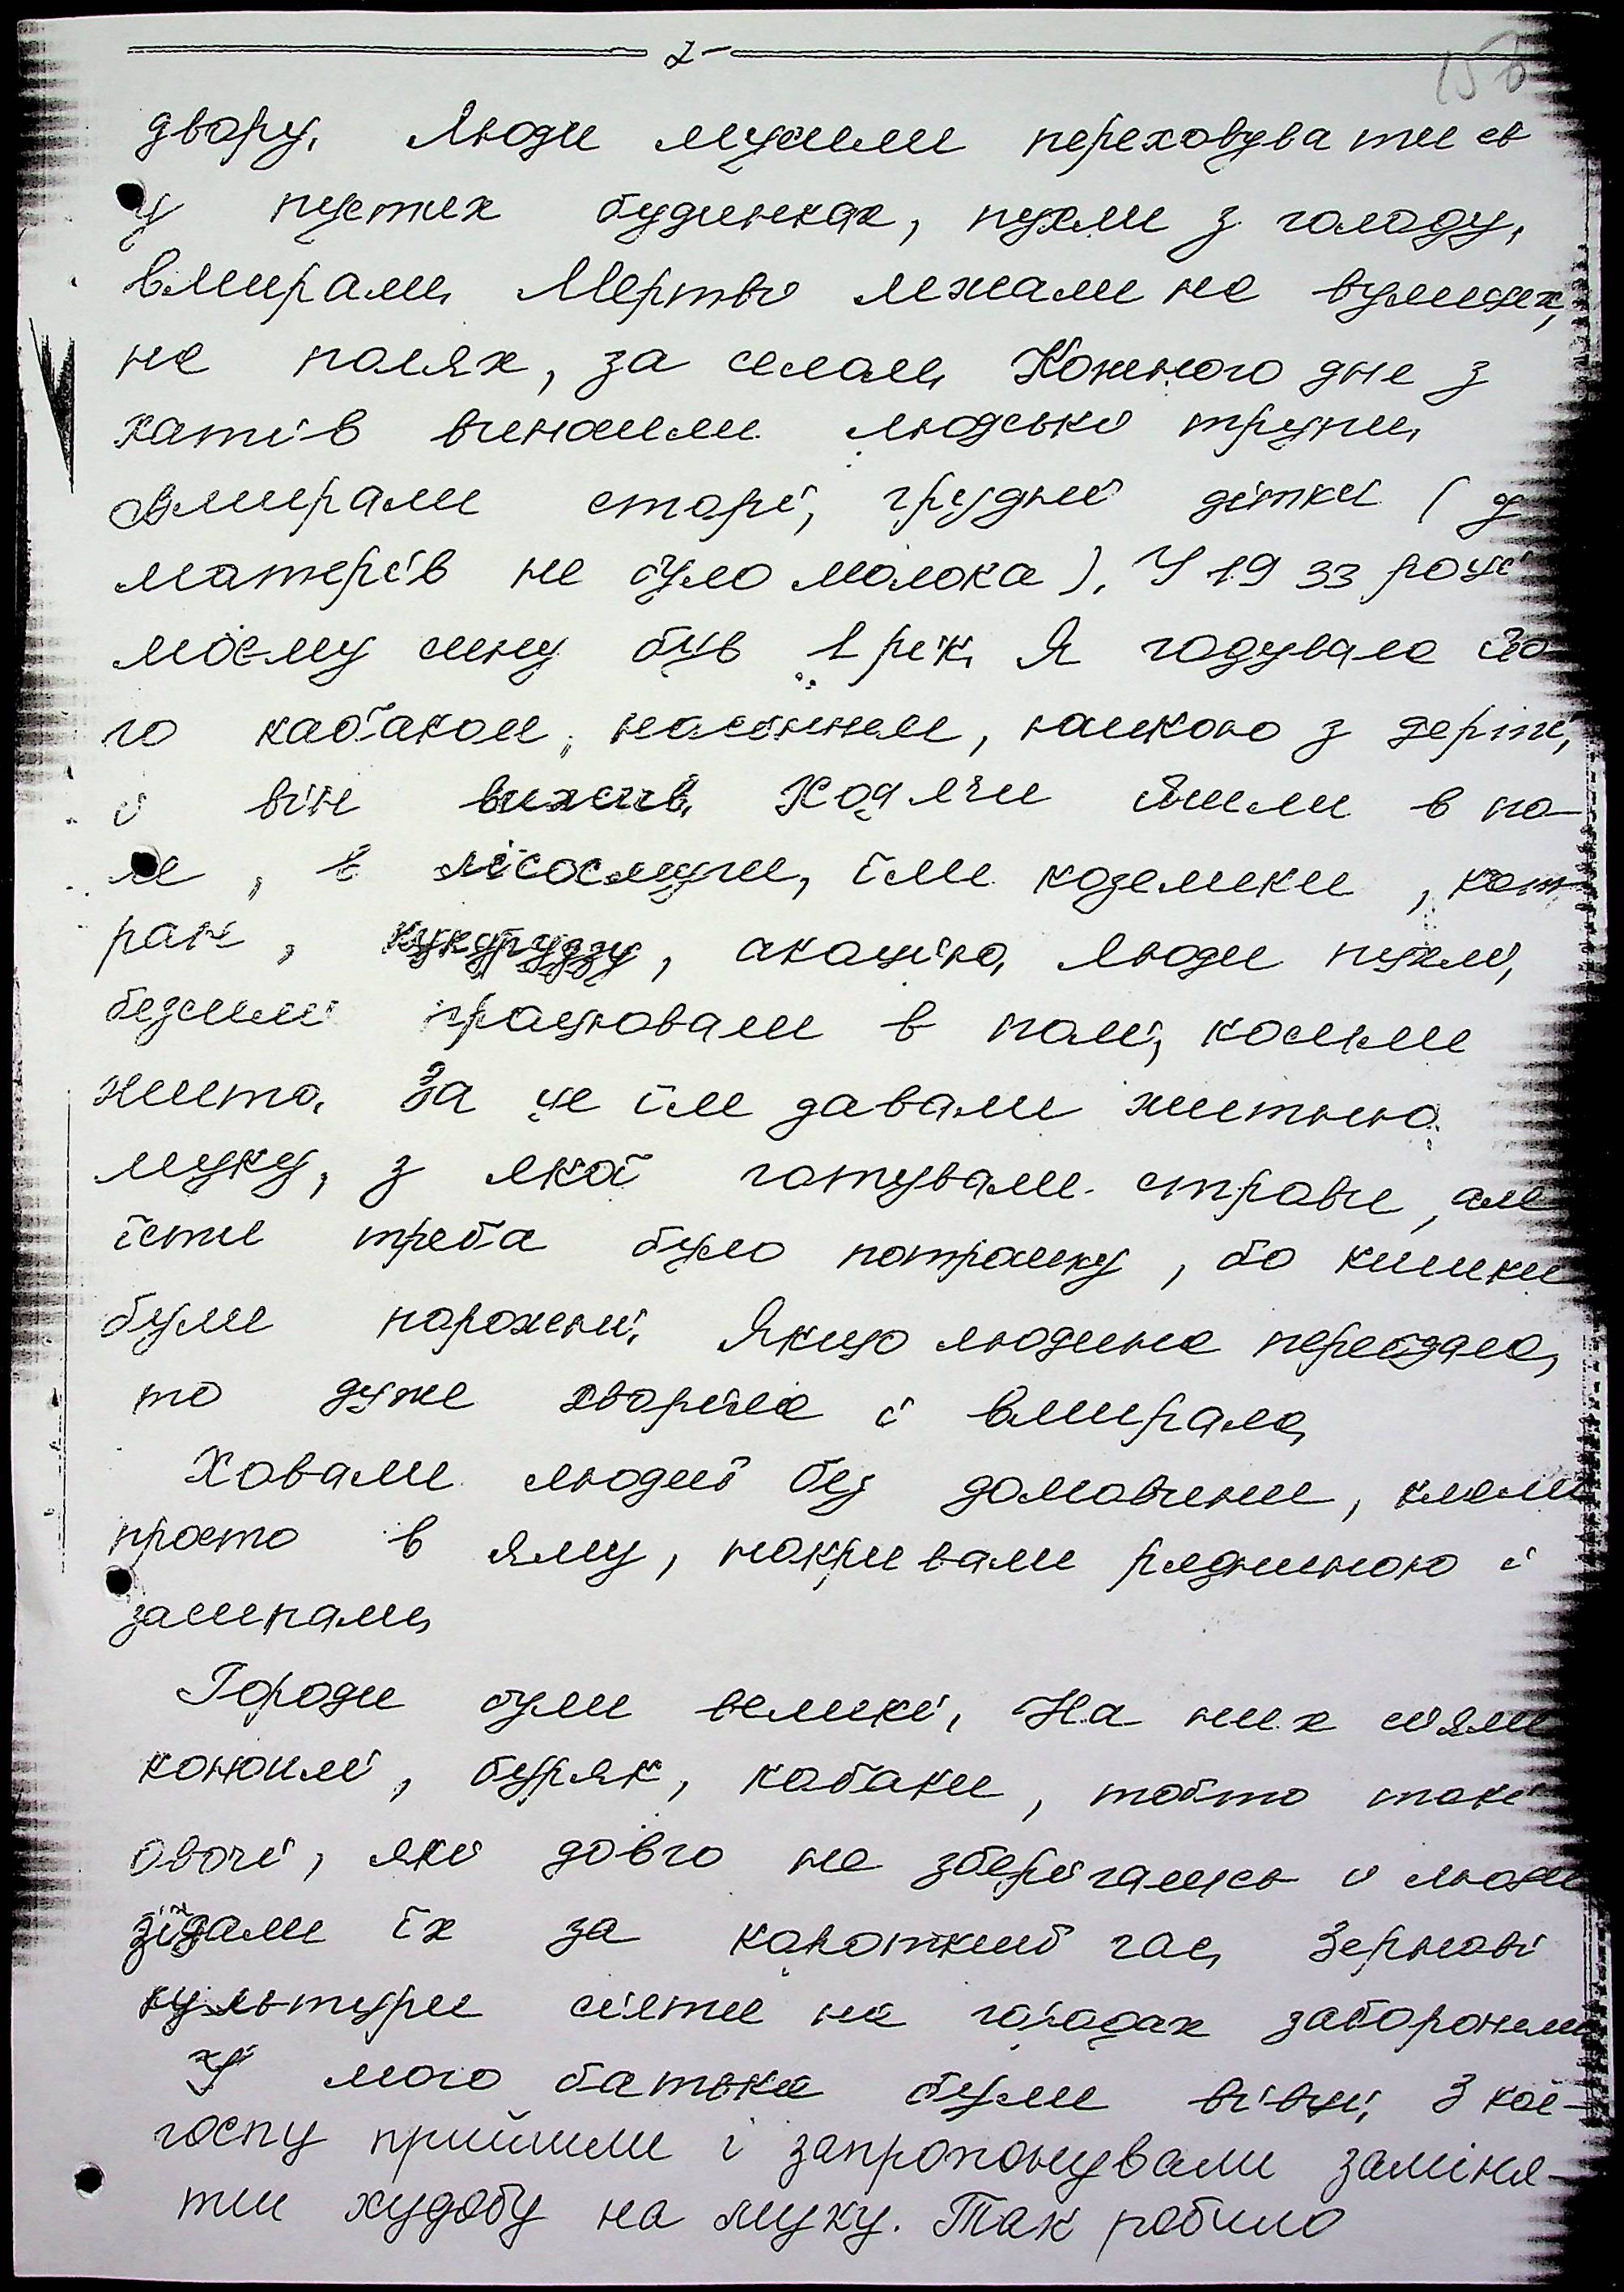 - 2 -
двору. Люди мусили переховуватись
у пустих будинках, пухли з голоду,
вмирали. Мертві лежали на вулицях,
на полях, за селом. Кожного дня з
хатів виносили людські трупи.
Вмирали старі, грудні дітки (у
матерів не було молока). У 1933 році
моєму сину був 1 рік. Я годувала йо-
го кабаком, насінням, кашкою з дерті,
і він вижив. Ходячи йшли в по-
ле, в лісосмуги, їли козельики, кат-
ран, кукурудзу, акацію. Люди пухлі,
безсилі працювали в полі, косили
жито. За це їм давали житню
муку, з якої готували страви, але
їсти треба було потрошку, бо кишки
були порожені. Якщо людина переїдала,
то дуже хворіла і вмирала.
Ховали людей без домовини, клали
просто в яму, накривали рядниною і
засипали.
Городи були великі. На них сіяли
коноплі, буряк, кабаки, тобто такі
овочі, які довго не зберігались і люди
зїдали їх за короткий час. Зернові
культури сіяти на городах заборонили
У мого батька були вівці. З кол-
госпу прийшли і запропонували заміня-
ти худобу на муку. Так робило